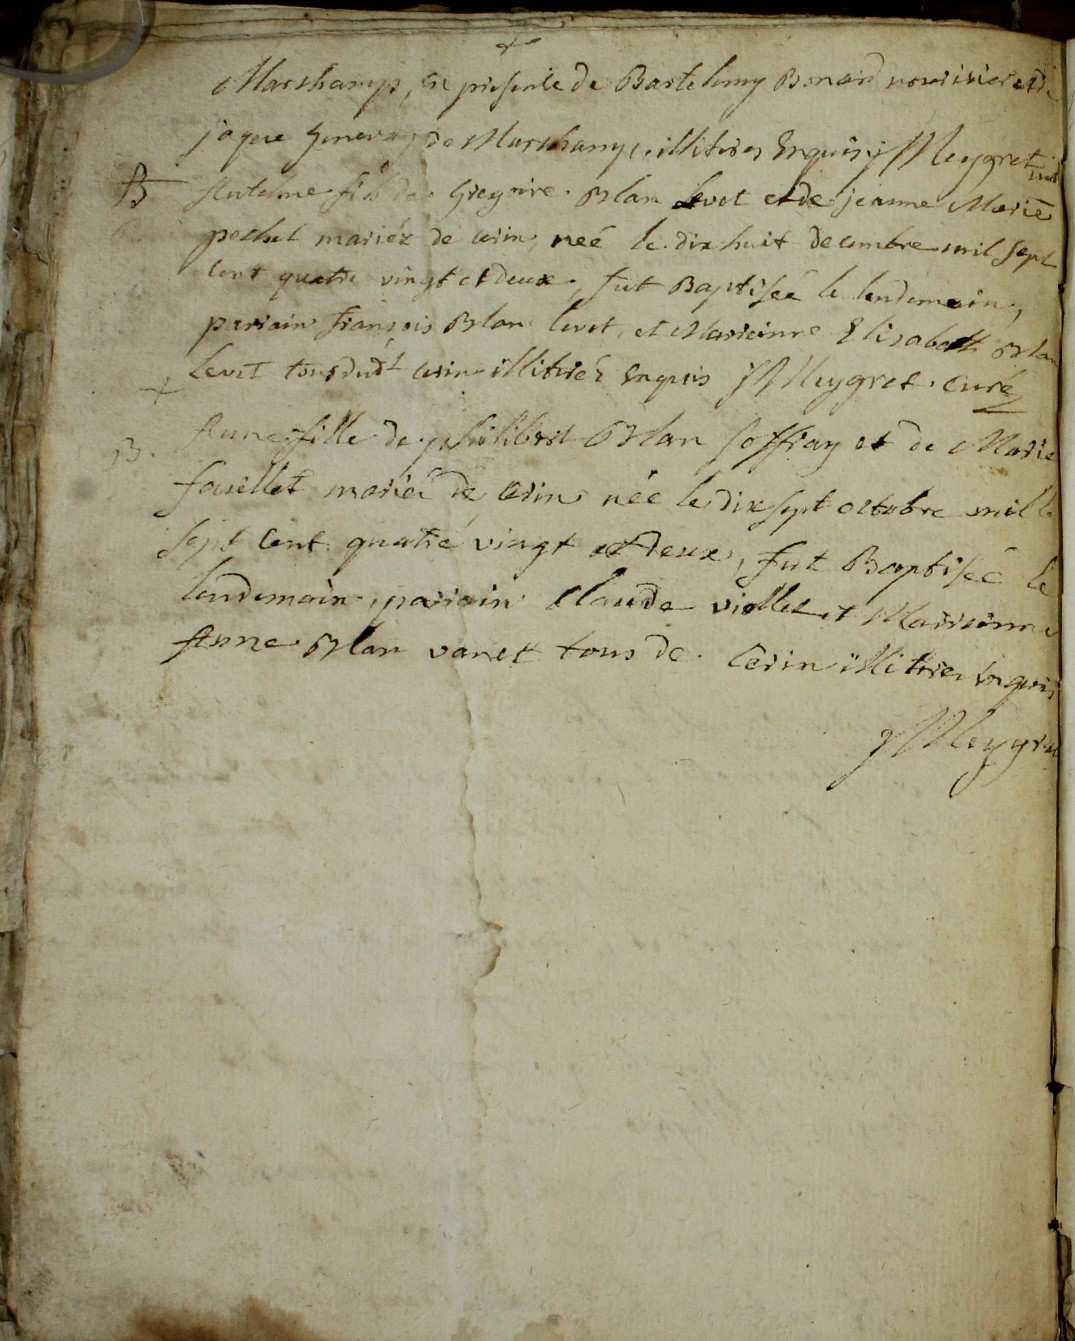 Marchamp, en presence de Bartelemy Bonard nourisier et de
jaque de Marchamp illitires Enquis, J Meygret curé
B Antoine fils de Gregoire Blan Levet et de jeanne Marie
pochet mariéz de Cerin, neé le dix huit decembre mil sept
Cent quatre vingt et deux, fut Baptiseé le lendemain,
pariain François Blan levet, et Mariainne Elisabeth Blan
Levet tous dudt Cerin illitiréz Enquis J Meygret curé
B. Anne fille de philibert Blan Joffray et de Marie
faeillet mariéz de Cerin née le dix sept octobre mille
Sept Cent quatre vingt et deux, fut Baptiseé le
lendemain, pariain Claude viollet et Mariainne
Anne Blan vanet tous de Cerin illitirez Enquis
J Meygret